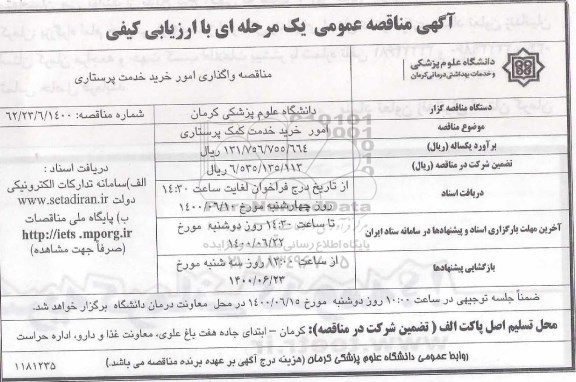 آگهی مناقصه عمومی یک مرحله ای با ارزیابی کیفی
دانشگاه علوم پزشکی
و خدمات بهداشتی درمانی کرمان
مناقصه واگذاری امور خرید خدمت پرستاری
دستگاه مناقصه گزار
دانشگاه علوم پزشکی کرمان
شماره مناقصه: ۶۲/۲۳/۶/۱۴۰۰
موضوع مناقصه
امور خرید خدمت کمک پرستاری
برآورد یکساله (ریال)
۱۳۱/۷۵۶/۷۵۵/۶۶۴ ریال
تضمین شرکت در مناقصه (ریال)
۶/۵۳۰/۱۳۵/۱۱۳ ریال
دریافت اسناد
از تاریخ درج فراخوان لغایت ساعت ۱۴:۳۰
روز چهارشنبه مورخ ۱۴۰۰/۰۶/۱۰
آخرین مهلت بارگزاری اسناد و پیشنهادها در سامانه ستاد ایران
تا ساعت ۱۴:۳۰ روز دوشنبه مورخ
۱۴۰۰/۰۶/۲۲
بازگشایی پیشنهادها
از ساعت ۱۲:۰۰ روز سه شنبه مورخ
۱۴۰۰/۰۶/۲۳
دریافت اسناد :
الف)سامانه تدارکات الکترونیکی
دولت www.setadiran.ir
ب) پایگاه ملی مناقصات
http://iets .mporg.ir
(صرفاً جهت مشاهده)
ضمناً جلسه توجیهی در ساعت ۱۰:۰۰ روز دوشنبه مورخ ۱۴۰۰/۰۶/۱۵ در محل معاونت درمان دانشگاه برگزار خواهد شد.
محل تسلیم اصل پاکت الف ( تضمین شرکت در مناقصه): کرمان – ابتدای جاده هفت باغ علوی، معاونت غذا و دارو، اداره حراست
روابط عمومی دانشگاه علوم پزشکی کرمان (هزینه درج آگهی بر عهده برنده مناقصه می باشد.)
۱۱۸۱۲۳۵